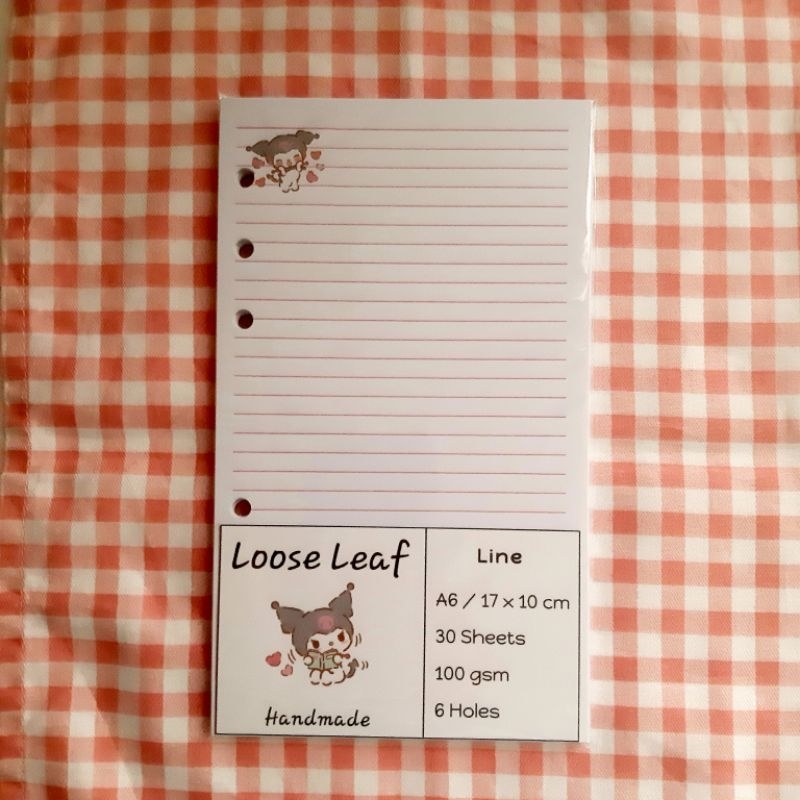 Loose Leaf
Handmade
Line
A6 / 17 x 10 cm
30 Sheets
100 gsm
6 Holes